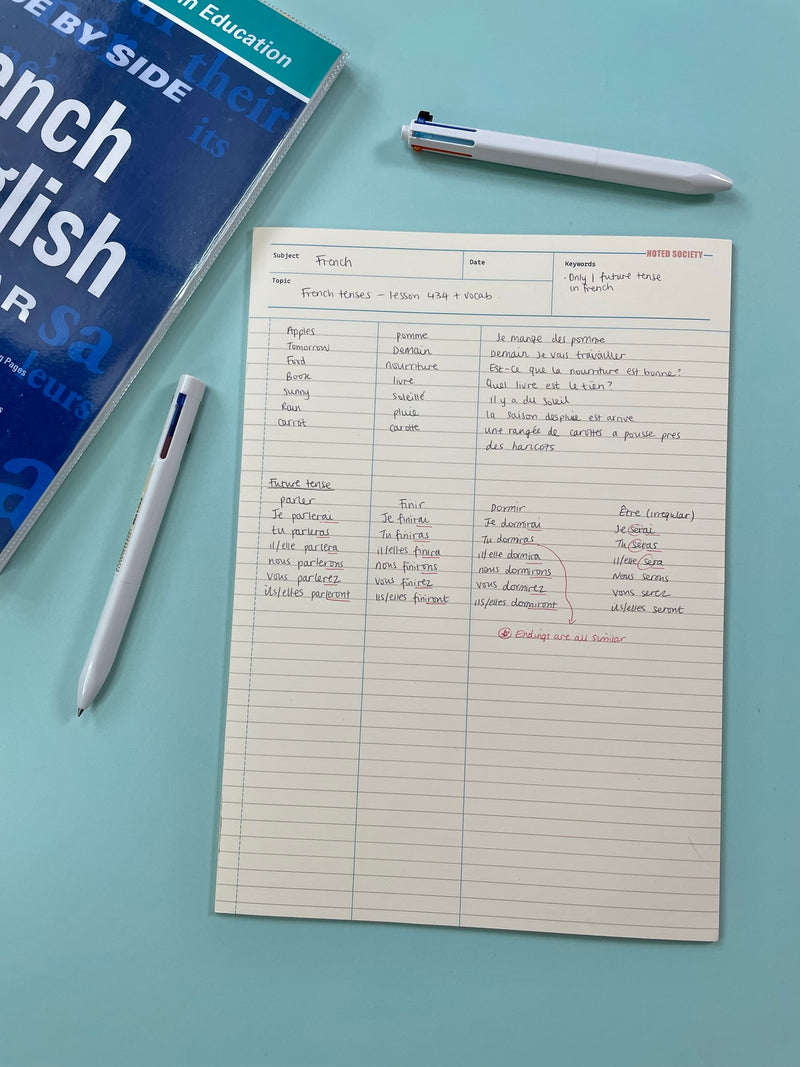 in Education
BY SIDE
their
its
sa
leurs
Pages
NOTED SOCIETY
Subject French
Date
Keywords
· Only 1 future tense
in french
Topic
French tenses – lesson 434 + vocab.
Apples pomme Je mange des pomme
Tomorrow Demain Demain Je vais travailler
Food nourriture Est-ce que la nourriture est bonne?
Book livre Quel livre est le tien?
sunny soleillé Il y a du soleil
Rain pluie la saison des pluie est arrive
carrot carotte une rangée de carottes a pousse pres
des haricots
Future tense
parler Finir Dormir Être (irregular)
Je parlerai Je finirai Je dormirai Je serai
tu parleras Tu finiras Tu dormiras Tu seras
il/elle parlera il/elles finira il/elle dormira il/elle sera
nous parlerons nous finirons nous dormirons Nous serons
vous parlerez vous finirez vous dormirez vous serez
ils/elles parleront ils/elles finiront ils/elles dormiront ils/elles seront
Endings are all similar